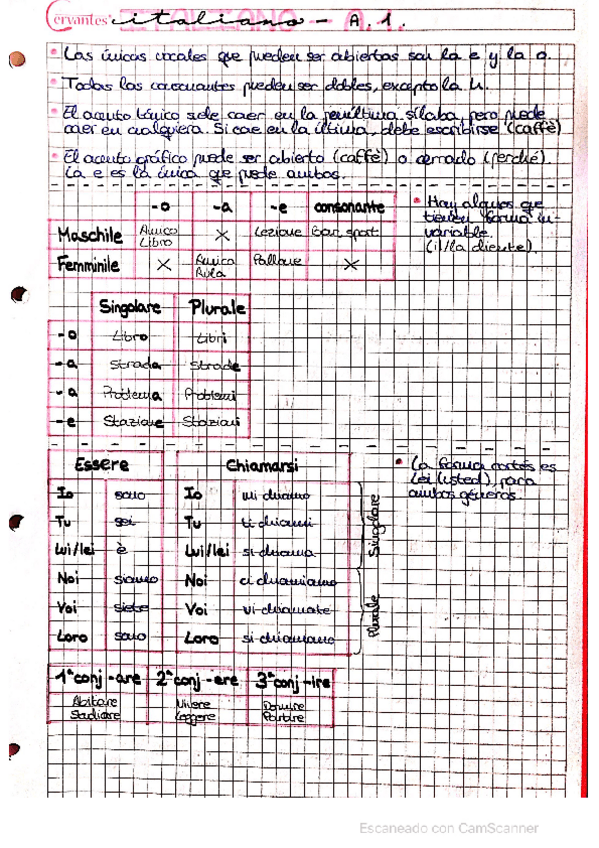 Cervantes' italiano - A.1.
• Las únicas vocales que pueden ser abiertas son la e y la o.
• Todas las consonantes pueden ser dobles, excepto la h.
• El acento tónico suele caer en la penúltima sílaba, pero puede
caer en cualquiera. Si cae en la última, debe escribirse (caffè)
• El acento gráfico puede ser abierto (caffè) o cerrado (perché).
La e es la única que puede ambos.
-o -a -e consonante
Maschile Amico Libro X Lezione bar, sport
Femminile X Amica Aula X
• Hay algunos que
tienen forma in-
variable.
(il/la cliente).
Singolare Plurale
-o Libro Libri
-a Strada Strade
-a Problema Problemi
-e Stazione Stazioni
Essere Chiamarsi
Io sono Io mi chiamo
Tu sei Tu ti chiami
Lui/lei è Lui/lei si chiama
Noi siamo Noi ci chiamiamo
Voi siete Voi vi chiamate
Loro sono Loro si chiamano
Singolare
Plurale
• La forma cortés es
Lei (usted), para
ambos géneros.
1ª conj -are 2ª conj -ere 3ª conj -ire
Abitare Vivere Dormire
Studiare Leggere Partire
Escaneado con CamScanner